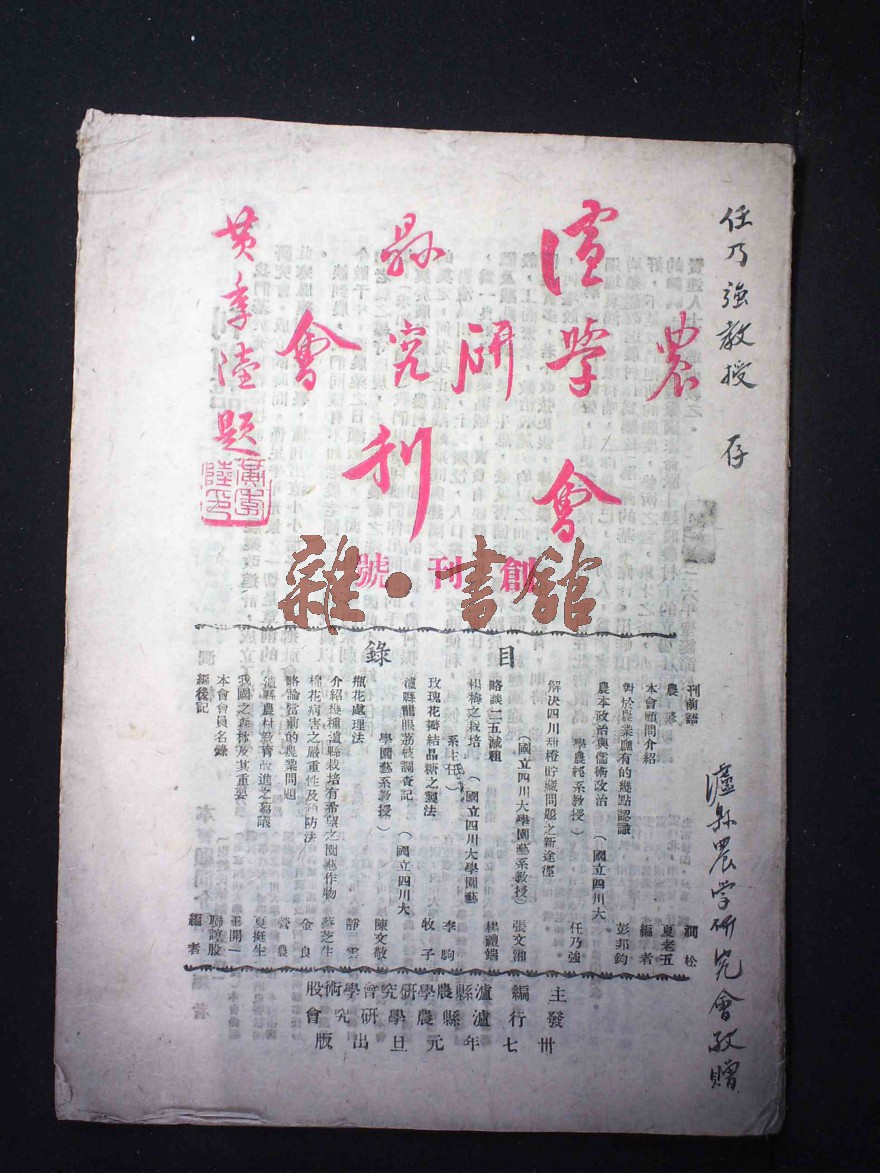 任乃強教授 存
瀘縣農学研究會敬贈
瀘縣
農學研究會
會刊
黃季陸題
黃季陸印
創刊號
雜·書館
目錄
刊前語 松
農 夏老五
本會顧問介紹 編者
對於農業應有的幾點認識 彭邦鈞
農本政治與儒術政治 (國立四川大學農經系教授) 任乃強
解決四川甜橙貯藏問題之新途徑 (國立四川大學園藝系教授) 張文湘
略談二五減租 楊禮端
楊梅之栽培 (國立四川大學園藝系主任) 李駒
玫瑰花瓣結晶糖之製法 牧子
瀘縣龍眼荔枝調查記 (國立四川大學園藝系教授) 陳文敬
瓶花處理法 靜雲
介紹幾種瀘縣栽培有希望之園藝作物 蘇芝生
棉花病害之嚴重性及預防法 金良
略論當前的農業問題 營農
瀘縣農村教育改進之芻議 夏挺生
我國之森林及其重要 王開一
本會會員名錄 聯誼股
編後記 編者
主編 瀘縣農學研究會學術股
發行 瀘縣農學研究會
卅七年元旦出版